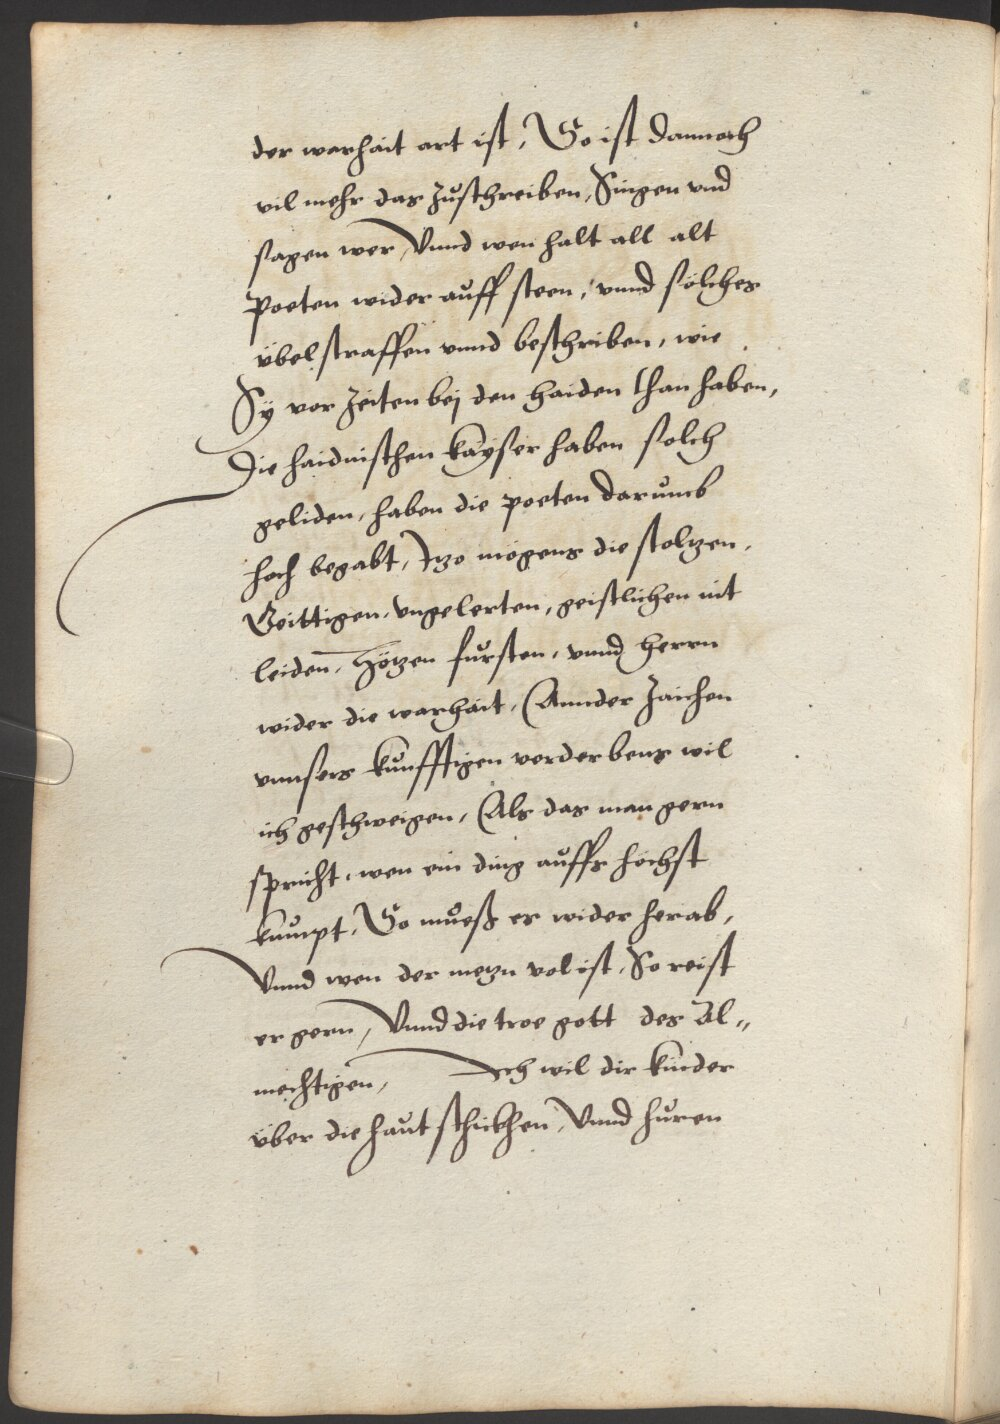 der warhait art ist, So ist dannoch
vil mehr das zuschreiben, Singen vnd
sagen wer, Vnnd wen halt all alt
Poeten wider auff steen, vnnd solches
übel straffen vnnd beschriben, wie
Sÿ vor zeiten bej den haiden than haben,
Die haidnischen kaÿser haben solch
geliden, haben die poeten darumb
hoch begabt, Jtzo mögens die stoltzen,
Geittigen, vngelerten, geistlichen nit
leiden, Hötzen fursten, vnnd herrn
wider die warhait, Annder zaichen
vnnsers kunfftigen verderbens wil
ich geschweigen, Als das man gern
spricht, wen ein ding auffs höchst
kumpt, So mueß es wider herab,
Vnnd wen der metzn vol ist, So reist
er gern, Vnnd die troe gott des Al„
mechtigen, Ich wil dir kinder
über die haut schickhen, Vnnd huren